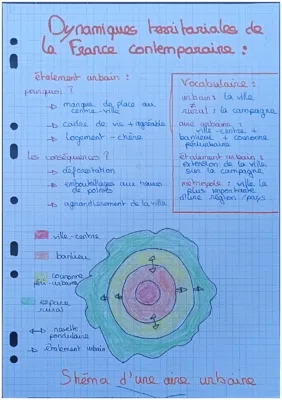 Dynamiques territoriales de
la France contemporaine :
étalement urbain :
pourquoi ?
→ manque de place au
centre-ville
→ cadre de vie + agréable
→ logement - chère
les conséquences ?
→ déforestation
→ embouteillages aux heures
de pointes
→ agrandissement de la ville
Vocabulaire :
urbain : la ville
rural : la campagne
aire urbaine :
ville-centre +
banlieue + couronne
périurbaine
étalement urbain :
extension de la ville
sur la campagne
métropole : ville la
plus importante
d'une région / pays
ville-centre
banlieue
couronne
péri-urbaine
espace
rural
navette
pendulaire
étalement urbain
Shéma d'une aire urbaine